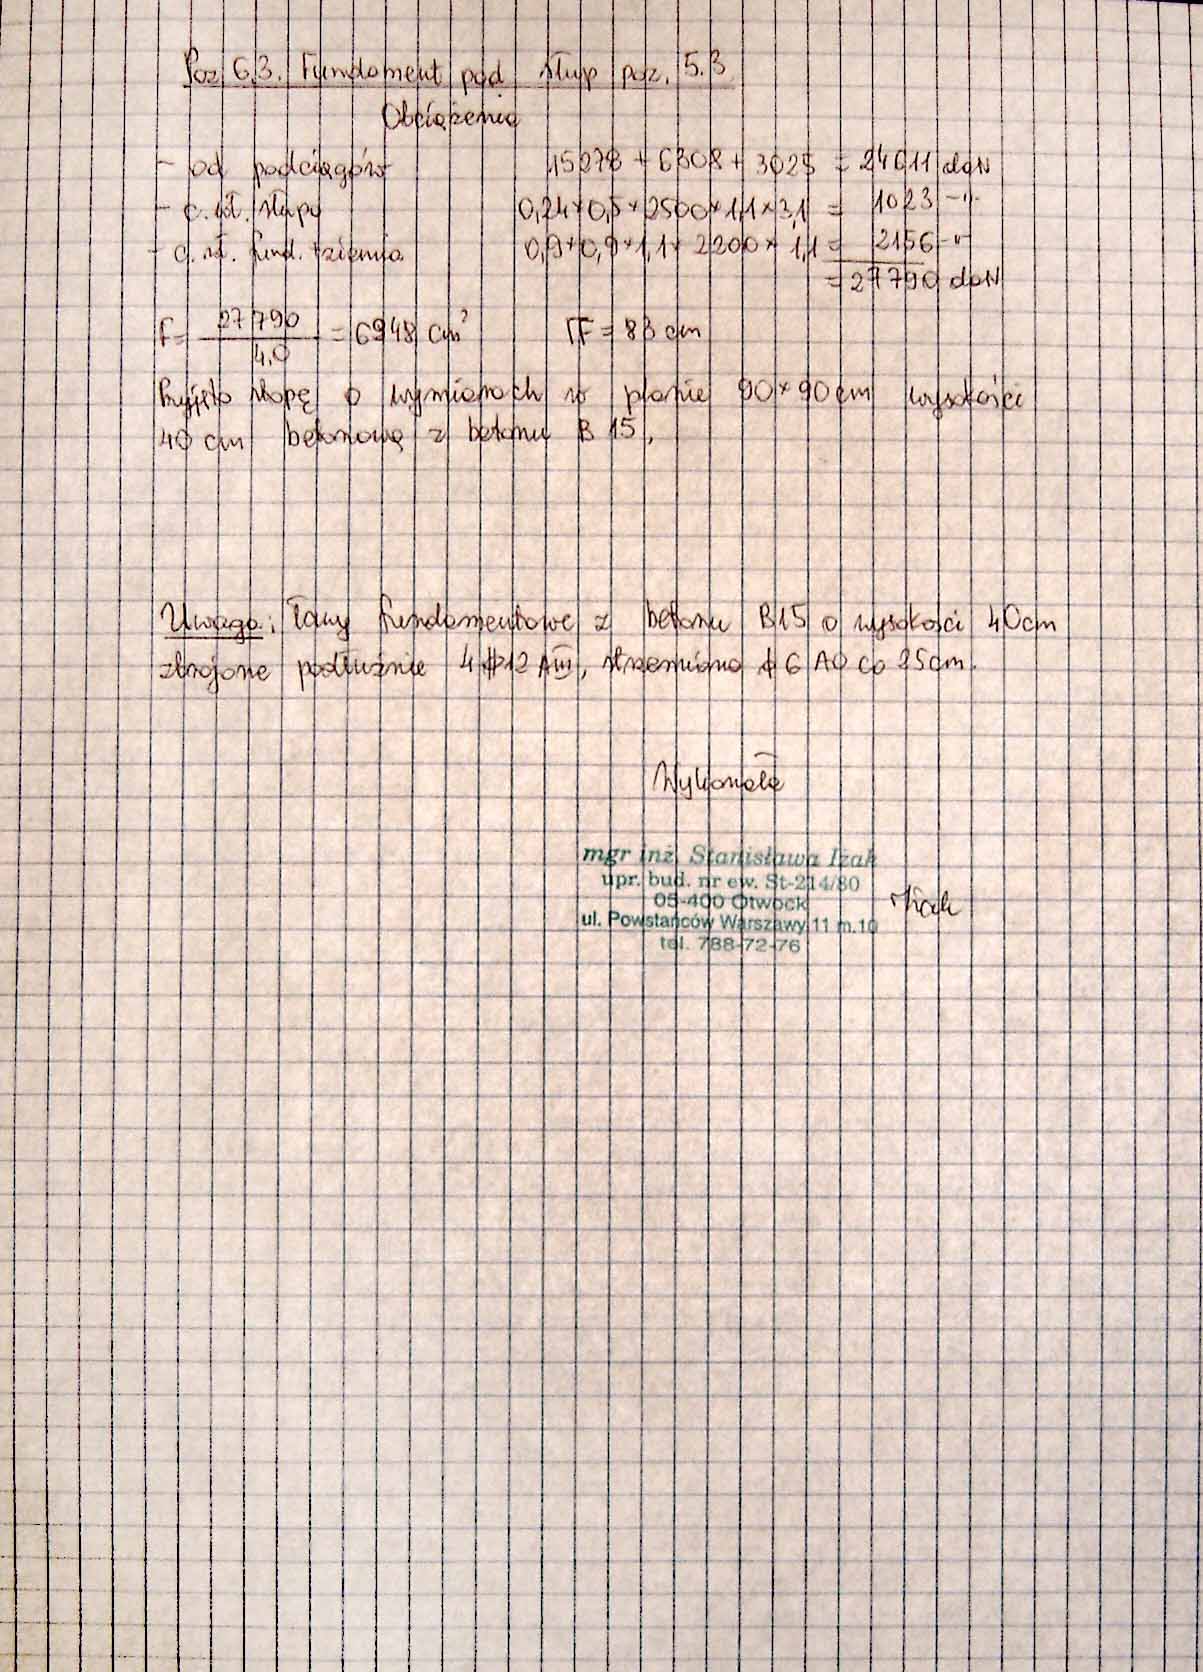 Poz. 6.3. Fundament pod słup poz. 5.3
Obciążenia
- od podciągów 15278 + 6308 + 3025 = 24611 daN
- c. wł. słupa 0,24×0,5×2500×1,1×3,1 = 1023 -"-
- c. wł. fund. + ziemia 0,9×0,9×1,1×2200×1,1 = 2156 -"-
= 27790 daN
F = 27790 / 4,0 = 6948 cm² √F = 83 cm
Przyjęto stopę o wymiarach w planie 90×90cm wysokości
40 cm betonową z betonu B 15.
Uwaga: Ławy fundamentowe z betonu B15 o wysokości 40cm
zbrojone podłużnie 4 #12 AIII, strzemiona ϕ 6 A0 co 25cm.
Wykonała
mgr inż. Stanisława Iżak
upr. bud. nr ew. St-214/80
05-400 Otwock
ul. Powstańców Warszawy 11 m.10
tel. 788-72-76